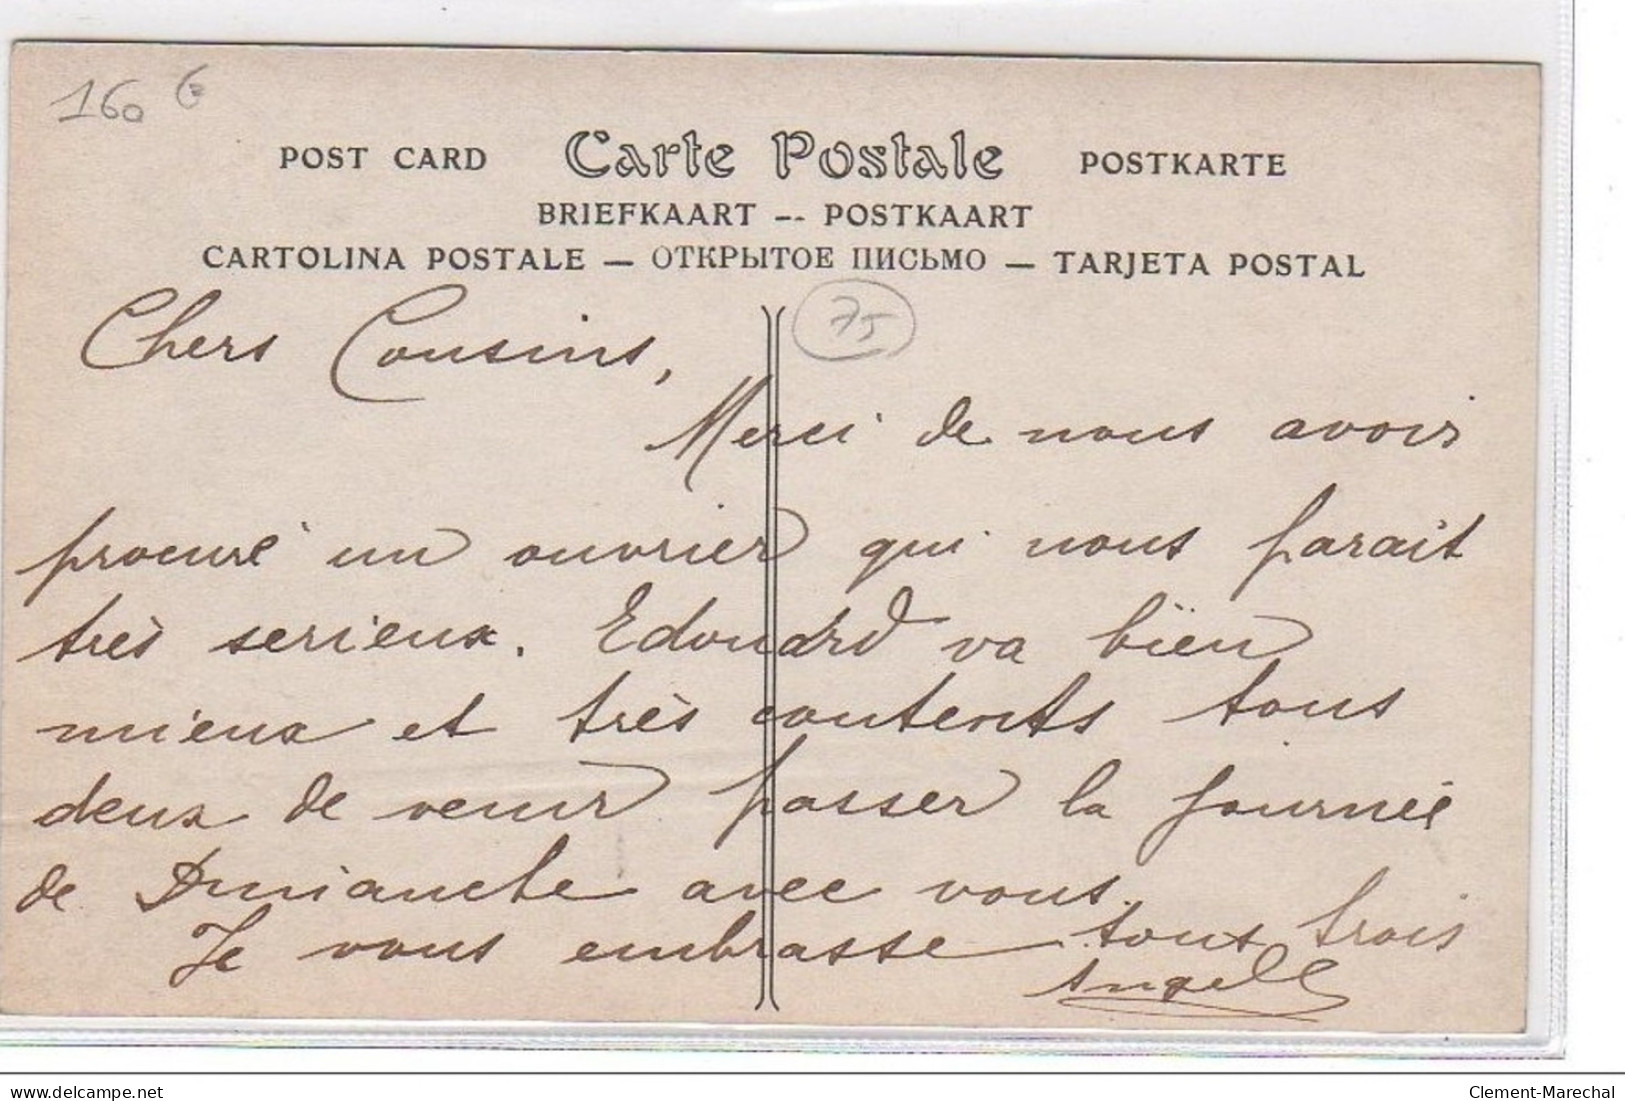 160 €
POST CARD Carte Postale POSTKARTE
BRIEFKAART -- POSTKAART
CARTOLINA POSTALE — ОТКРЫТОЕ ПИСЬМО — TARJETA POSTAL
75
Chers Cousins,
Merci de nous avoir
procuré un ouvrier qui nous parait
très serieux. Edouard va bien
mieux et très contents tous
deux de venir passer la journée
de Dimanche avec vous.
Je vous embrasse tous trois
Angell
delcampe.net
Clement-Marechal